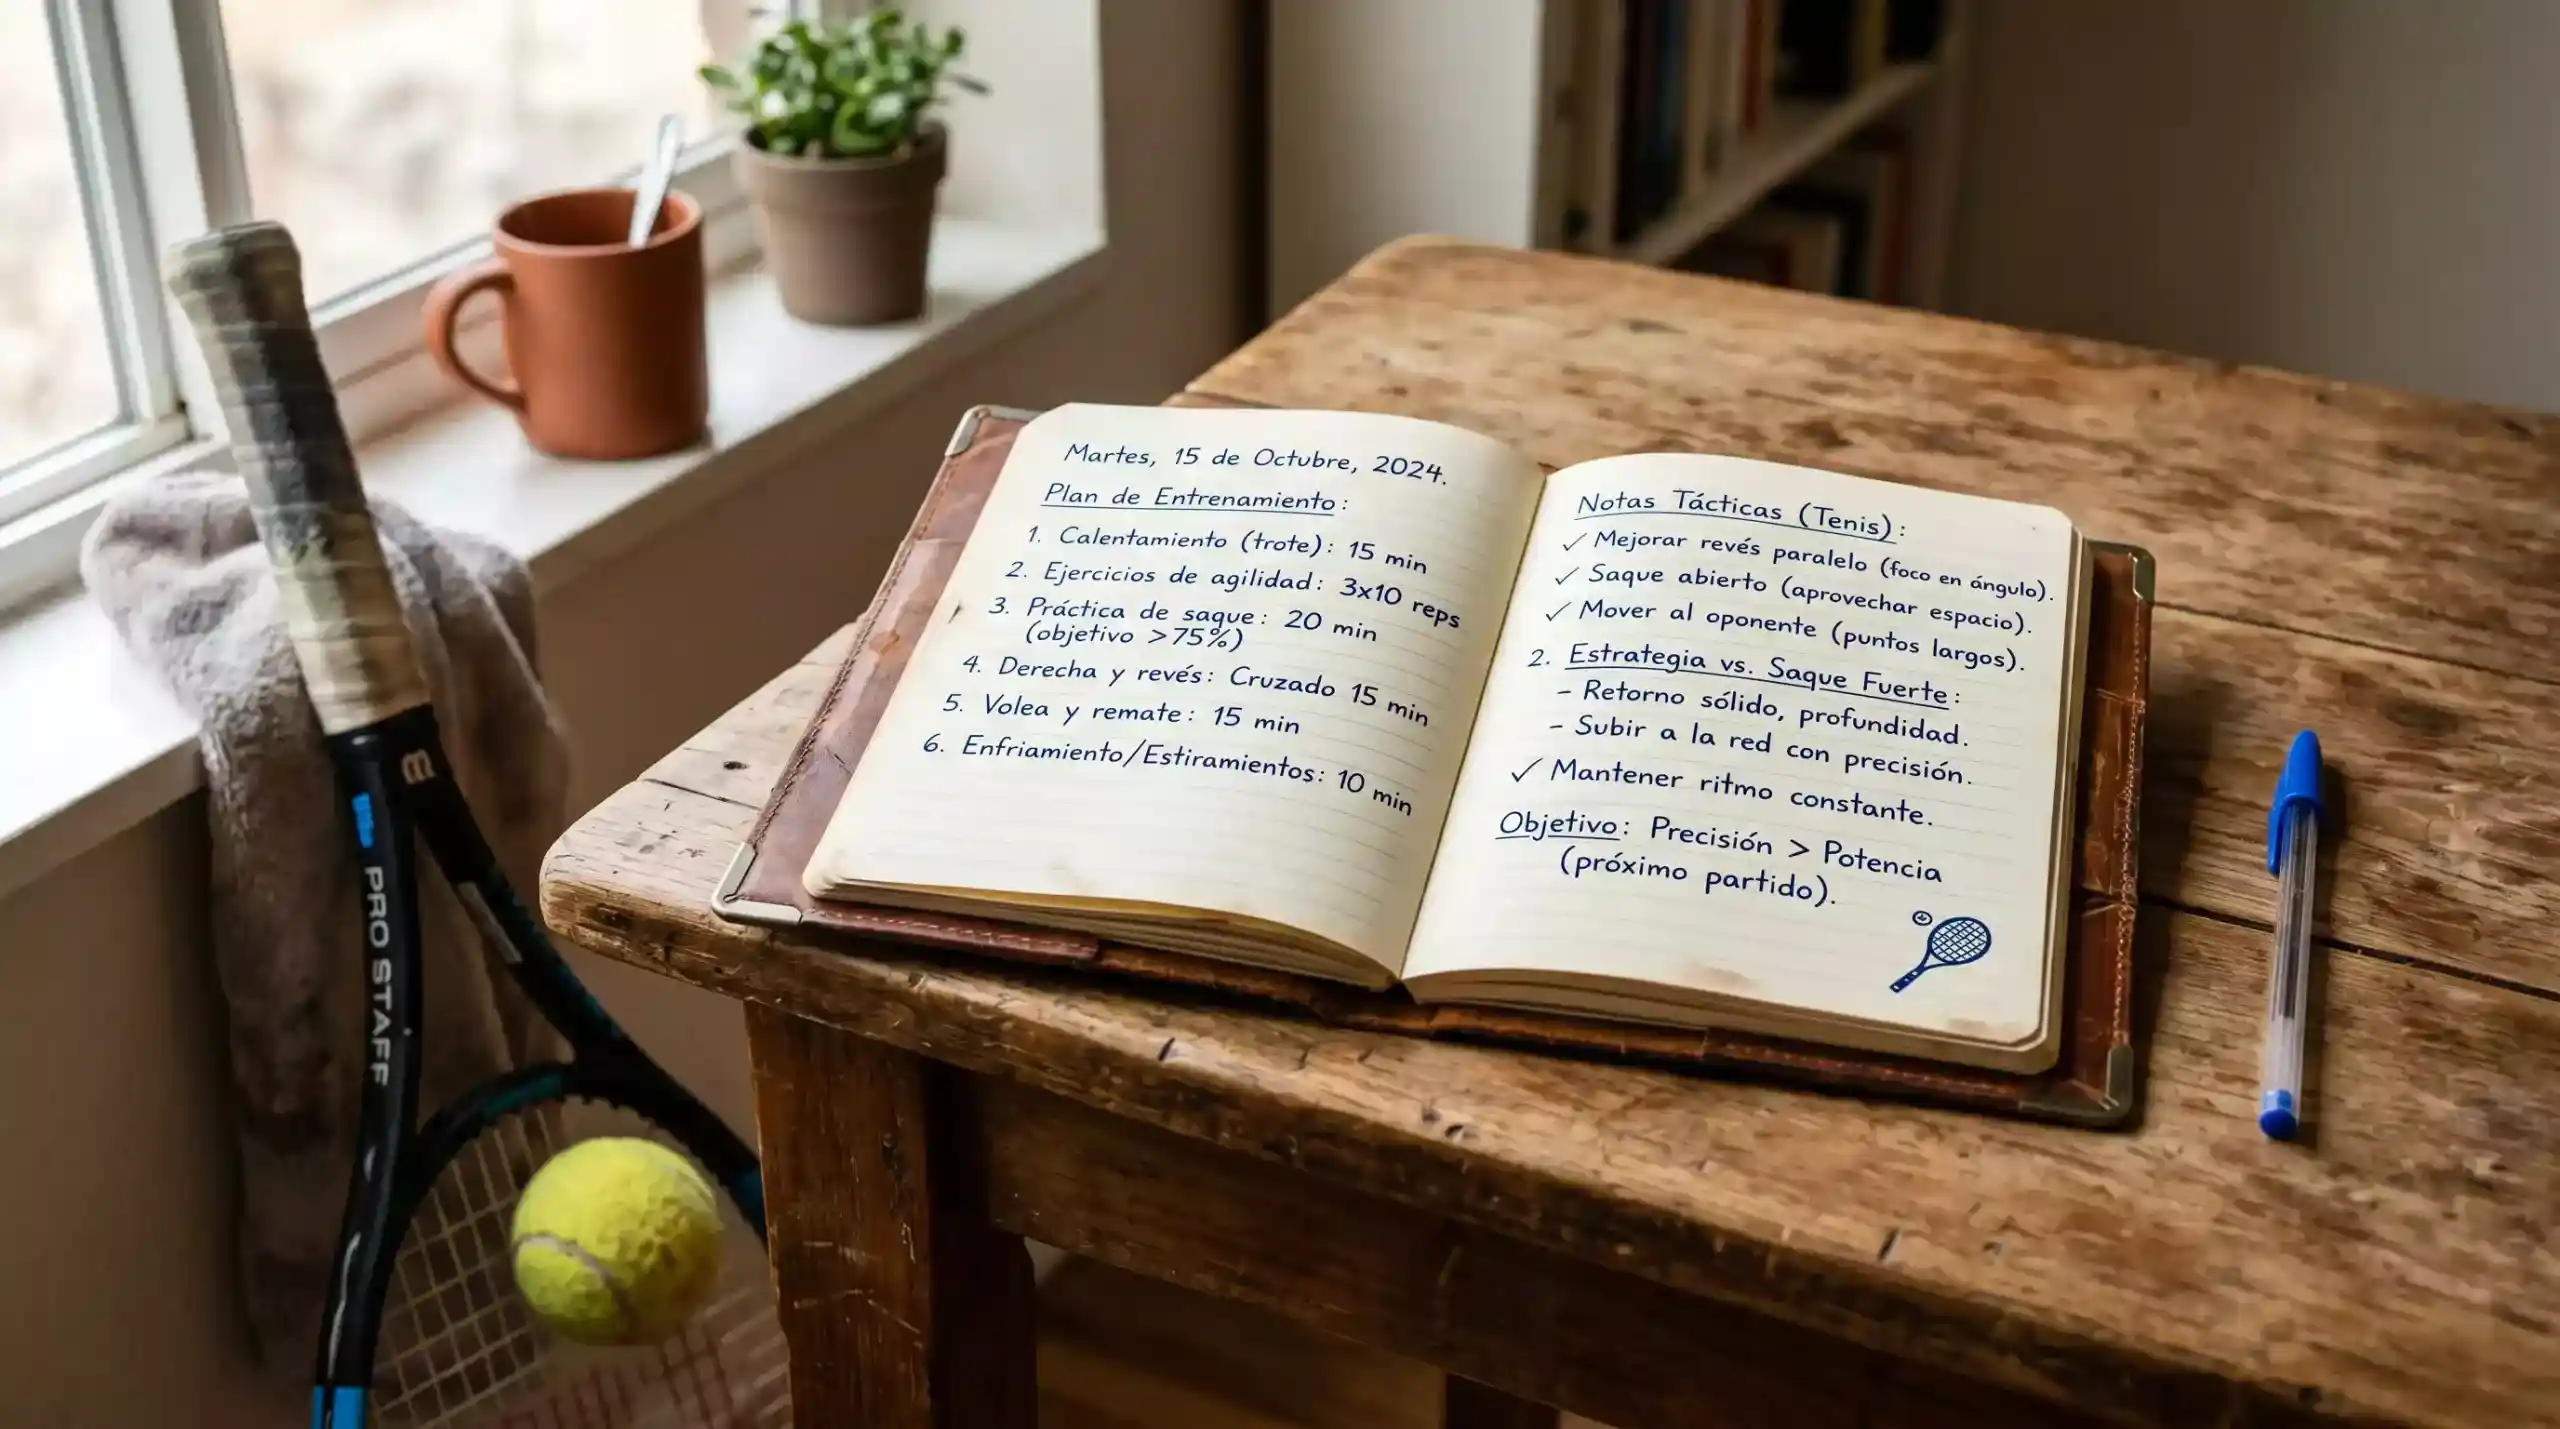 Martes, 15 de Octubre, 2024.
Plan de Entrenamiento:
1. Calentamiento (trote): 15 min
2. Ejercicios de agilidad: 3x10 reps
3. Práctica de saque: 20 min
(objetivo >75%)
4. Derecha y revés: Cruzado 15 min
5. Volea y remate: 15 min
6. Enfriamiento/Estiramientos: 10 min
Notas Tácticas (Tenis):
✓ Mejorar revés paralelo (foco en ángulo).
✓ Saque abierto (aprovechar espacio).
✓ Mover al oponente (puntos largos).
2. Estrategia vs. Saque Fuerte:
– Retorno sólido, profundidad.
– Subir a la red con precisión.
✓ Mantener ritmo constante.
Objetivo: Precisión > Potencia
(próximo partido).
PRO STAFF